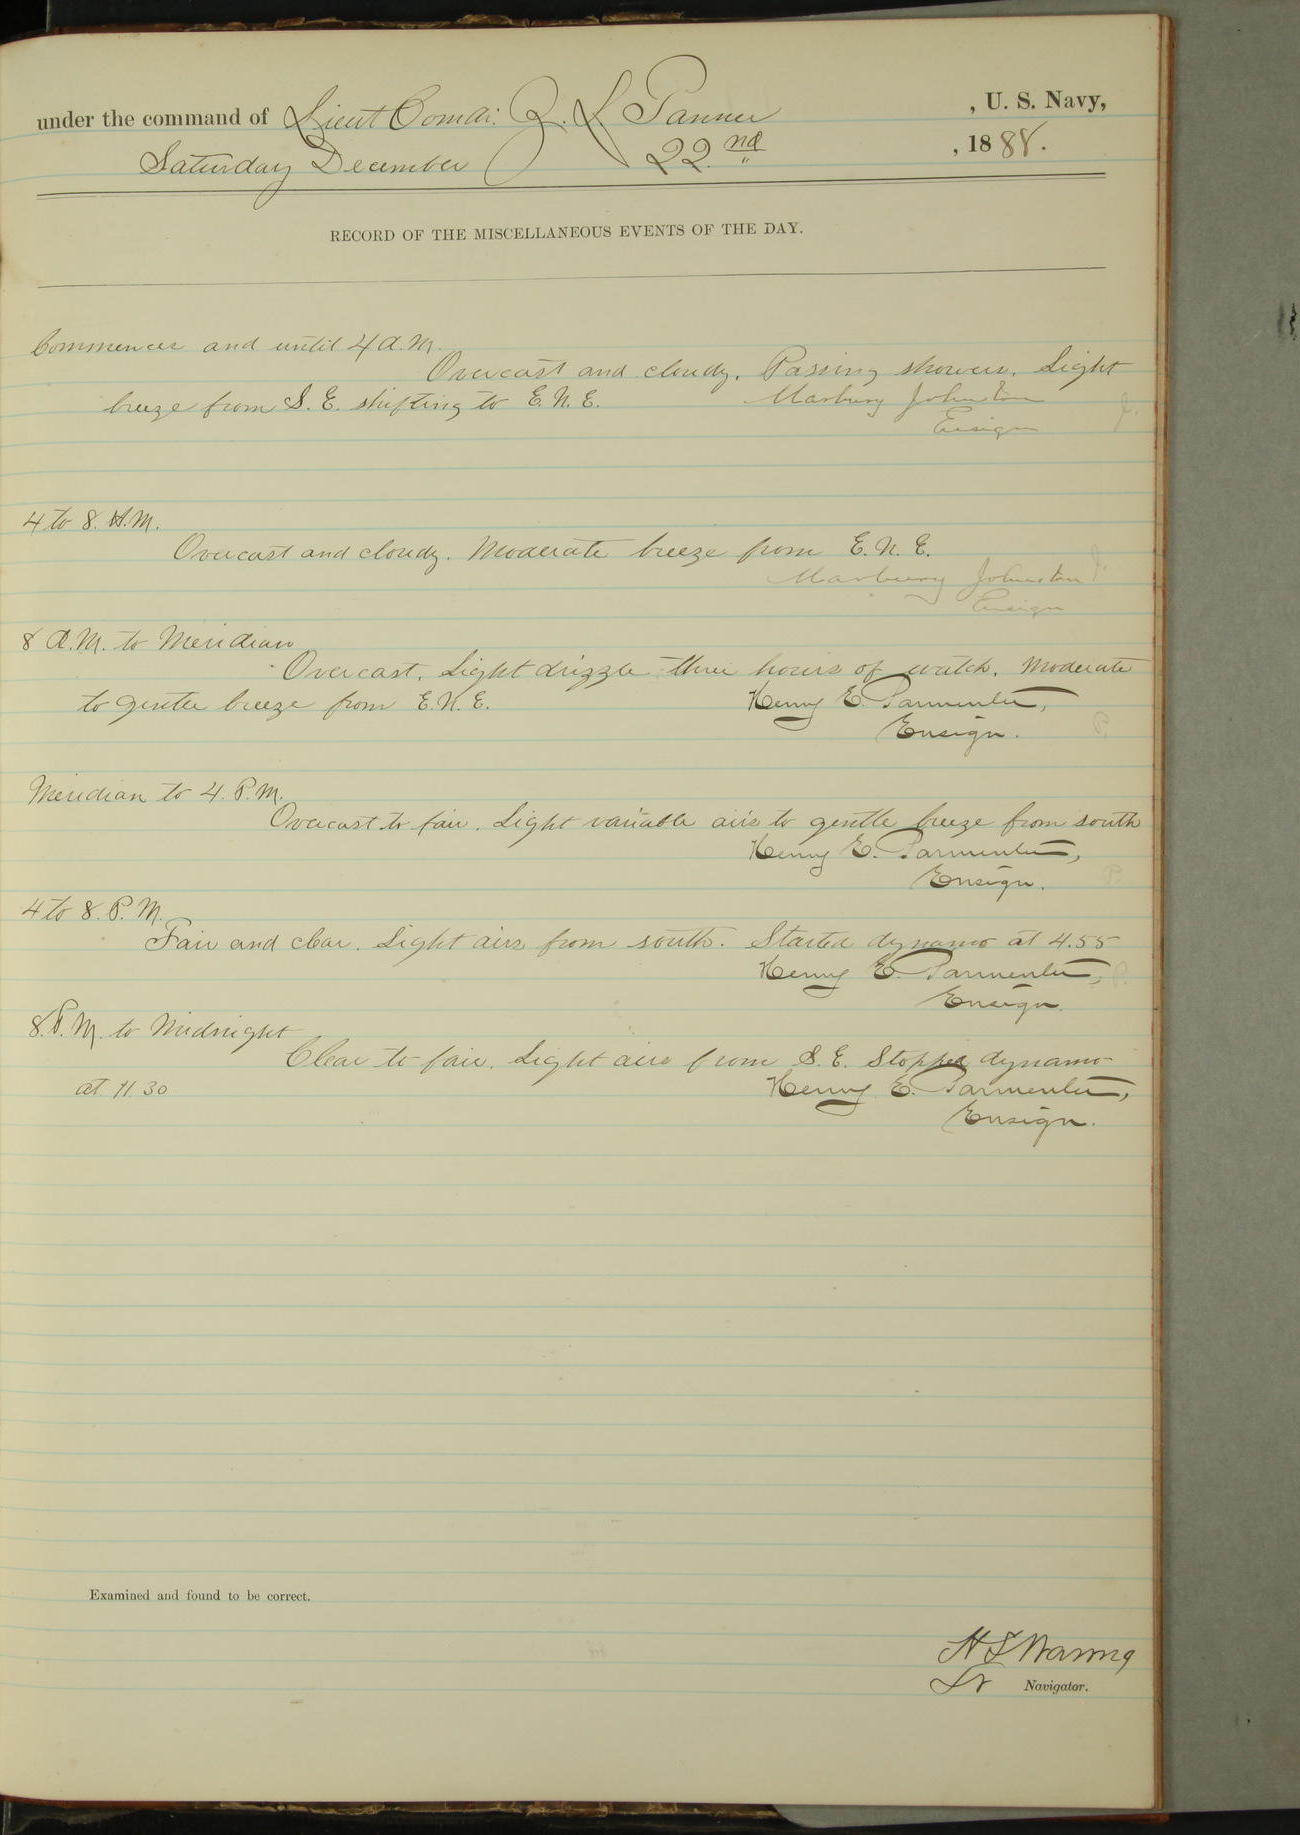 under the command of Lieut Comdr: Z. L Tanner , U. S. Navy,
Saturday December 22.nd , 1888.
RECORD OF THE MISCELLANEOUS EVENTS OF THE DAY.
Commences and until 4 A.M.
Overcast and cloudy. Passing showers. Light
breeze from S. E. shifting to E. N. E. Marbury Johnston
Ensign
4 to 8. A.M.
Overcast and cloudy. Moderate breeze from E. N. E.
Marbury Johnston
Ensign
8 A.M. to Meridian
Overcast. Light drizzle three hours of watch. Moderate
to gentle breeze from E. N. E. Henry E. Parmenter,
Ensign.
Meridian to 4. P.M.
Overcast to fair. Light variable airs to gentle breeze from south
Henry E. Parmenter,
Ensign.
4 to 8. P. M.
Fair and clear. Light airs from south. Started dynamo at 4.55
Henry E. Parmenter,
Ensign.
8. P. M. to Midnight
Clear to fair. Light airs from S. E. Stopped dynamo
at 11 30 Henry E. Parmenter,
Ensign.
Examined and found to be correct.
H S Waring
Lt Navigator.